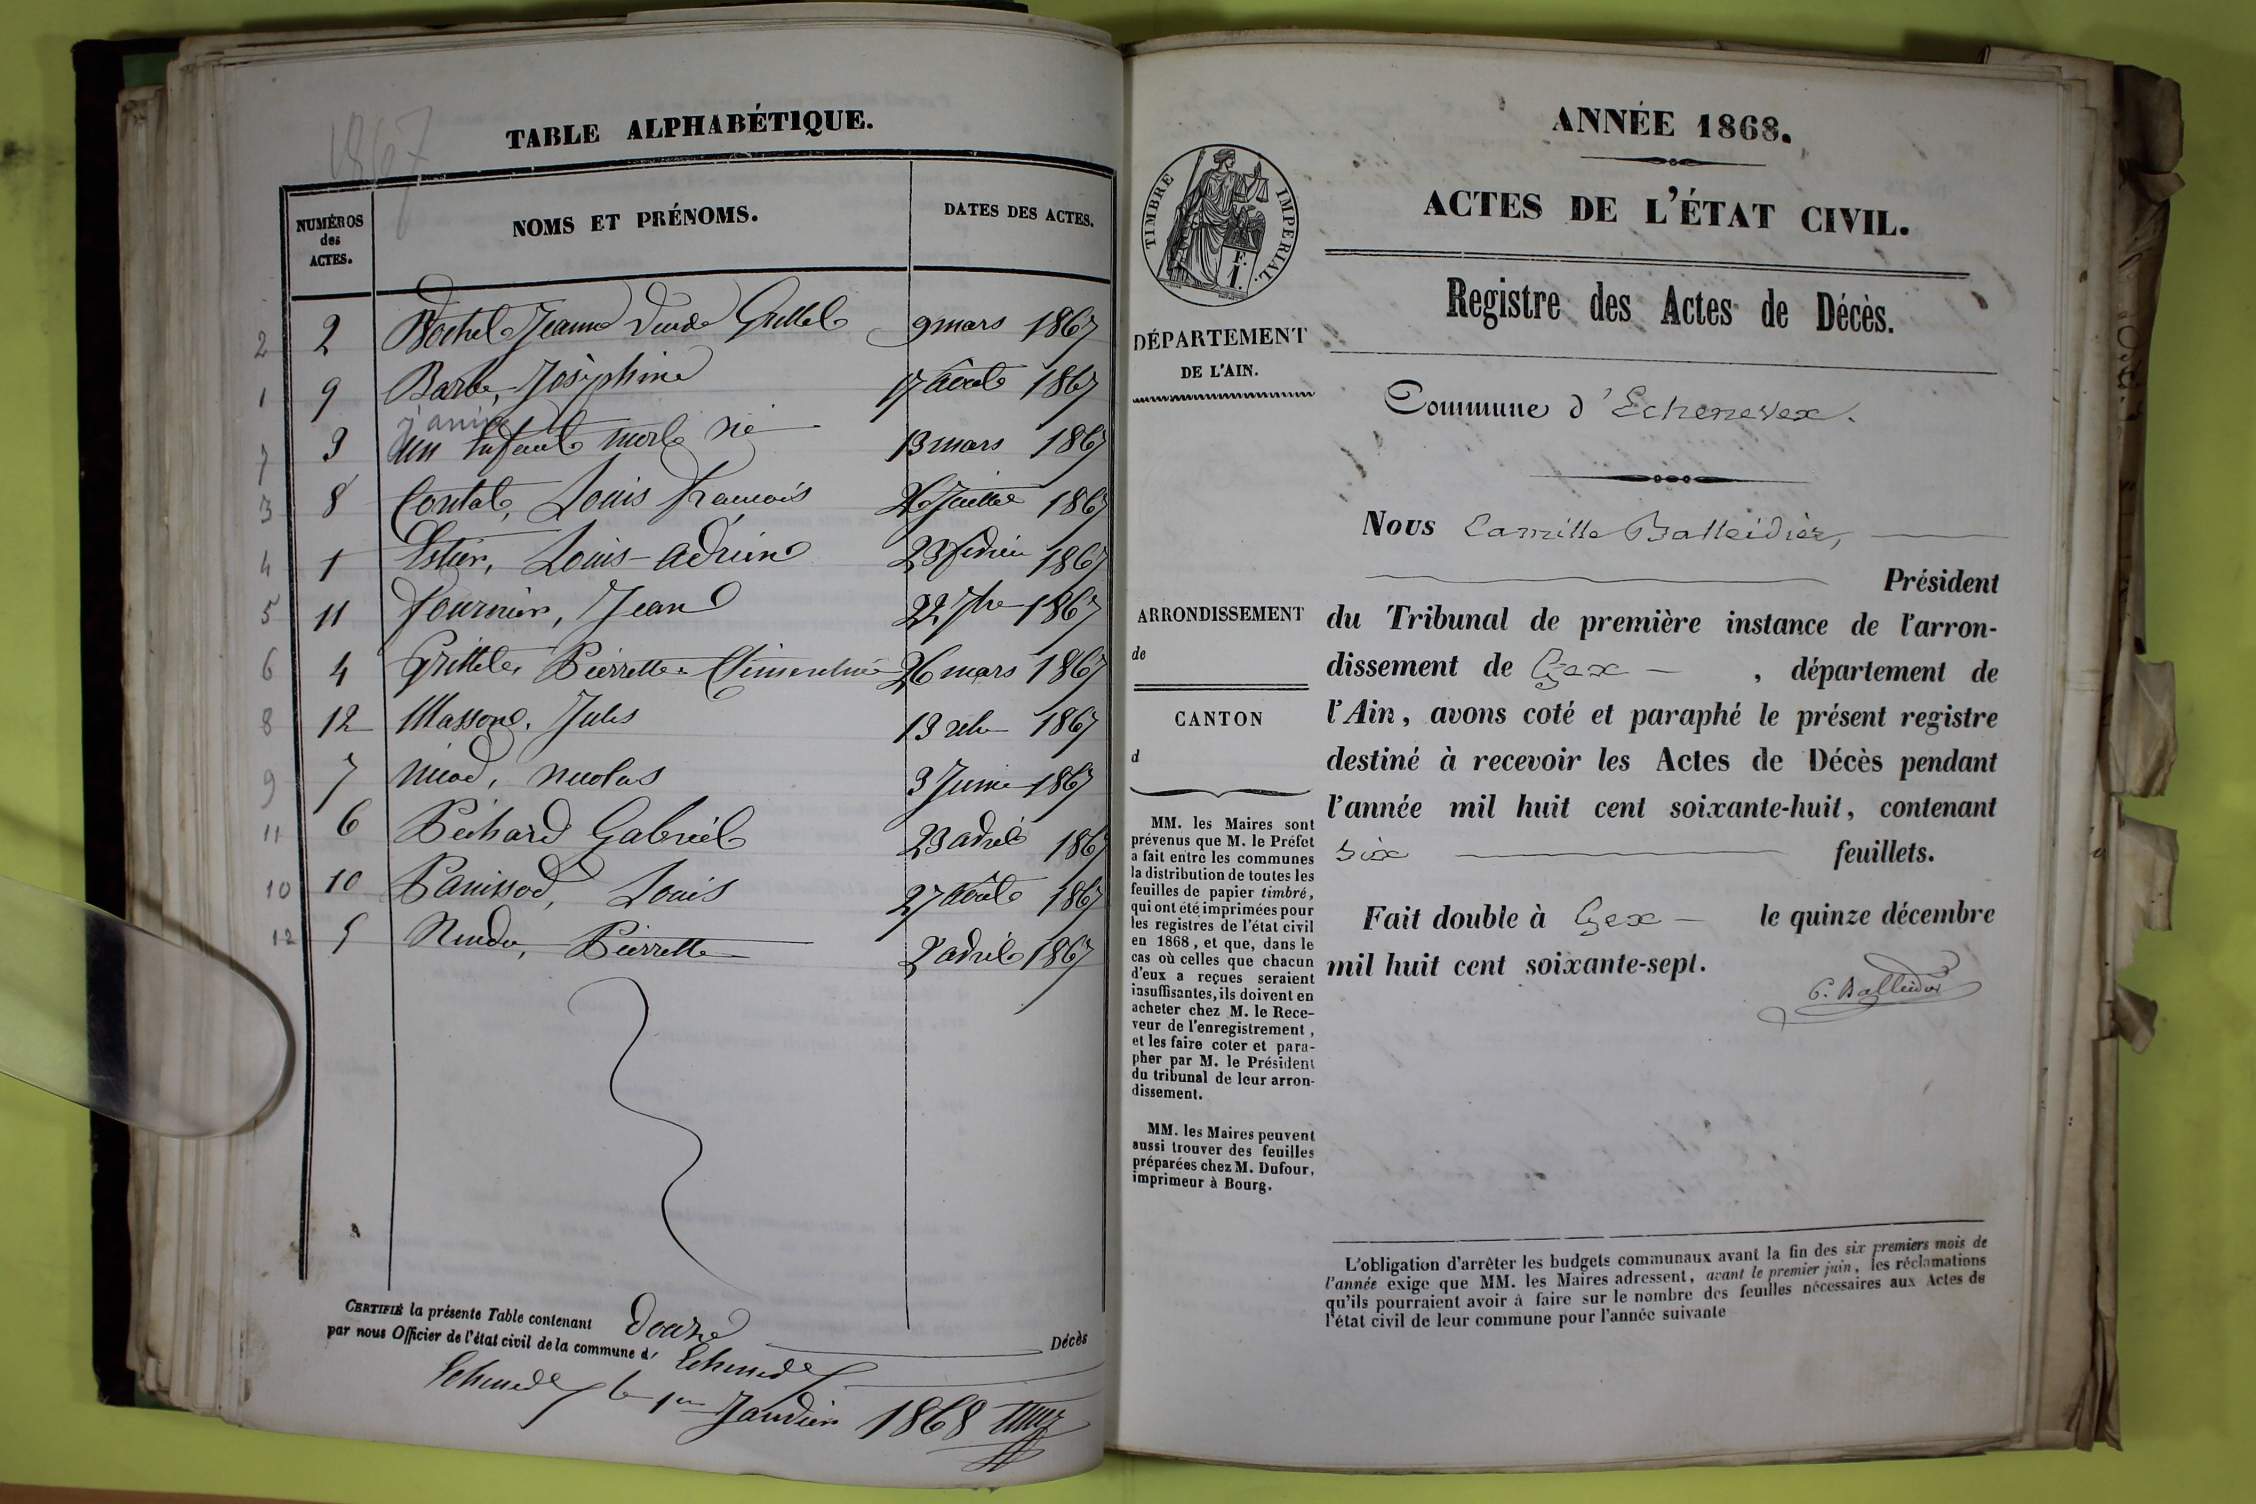 1867
TABLE ALPHABÉTIQUE.
NUMÉROS
des
ACTES.
NOMS ET PRÉNOMS.
DATES DES ACTES.
2 2 Jeanne 9 mars 1867
1 9 Barbe, Joséphine 17 Août 1867
7 3 un Enfant mort né 13 mars 1867
3 8 Contat, Louis François 26 Juillet 1867
4 1 Louis-Adrien 23 1867
5 11 Fournier, Jean 22 7bre 1867
6 4 Pierrette 26 mars 1867
8 12 Masson, Jules 13 1867
9 7 Nicod, Nicolas 3 Juin 1867
11 6 Gabriel 23 avril 1867
10 10 Panissod, Louis 27 Août 1867
12 5 Pierrette 2 avril 1867
CERTIFIÉ la présente Table contenant Douze Décès
par nous Officier de l'état civil de la commune d' Echenevex
Echenevex le 1er Janvier 1868
ANNÉE 1868.
ACTES DE L'ÉTAT CIVIL.
TIMBRE IMPÉRIAL.
F.
1.
Registre des Actes de Décès.
DÉPARTEMENT
DE L'AIN.
Commune d'Echenevex.
Nous Camille Balleidier,
Président
ARRONDISSEMENT
de
CANTON
d
du Tribunal de première instance de l'arron-
dissement de Gex — , département de
l'Ain, avons coté et paraphé le présent registre
destiné à recevoir les Actes de Décès pendant
l'année mil huit cent soixante-huit, contenant
six feuillets.
Fait double à Gex — le quinze décembre
mil huit cent soixante-sept.
C. Balleidier
MM. les Maires sont
prévenus que M. le Préfet
a fait entre les communes
la distribution de toutes les
feuilles de papier timbré,
qui ont été imprimées pour
les registres de l'état civil
en 1868, et que, dans le
cas où celles que chacun
d'eux a reçues seraient
insuffisantes, ils doivent en
acheter chez M. le Rece-
veur de l'enregistrement,
et les faire coter et para-
pher par M. le Président
du tribunal de leur arron-
dissement.
MM. les Maires peuvent
aussi trouver des feuilles
préparées chez M. Dufour,
imprimeur à Bourg.
L'obligation d'arrêter les budgets communaux avant la fin des six premiers mois de
l'année exige que MM. les Maires adressent, avant le premier juin, les réclamations
qu'ils pourraient avoir à faire sur le nombre des feuilles nécessaires aux Actes de
l'état civil de leur commune pour l'année suivante